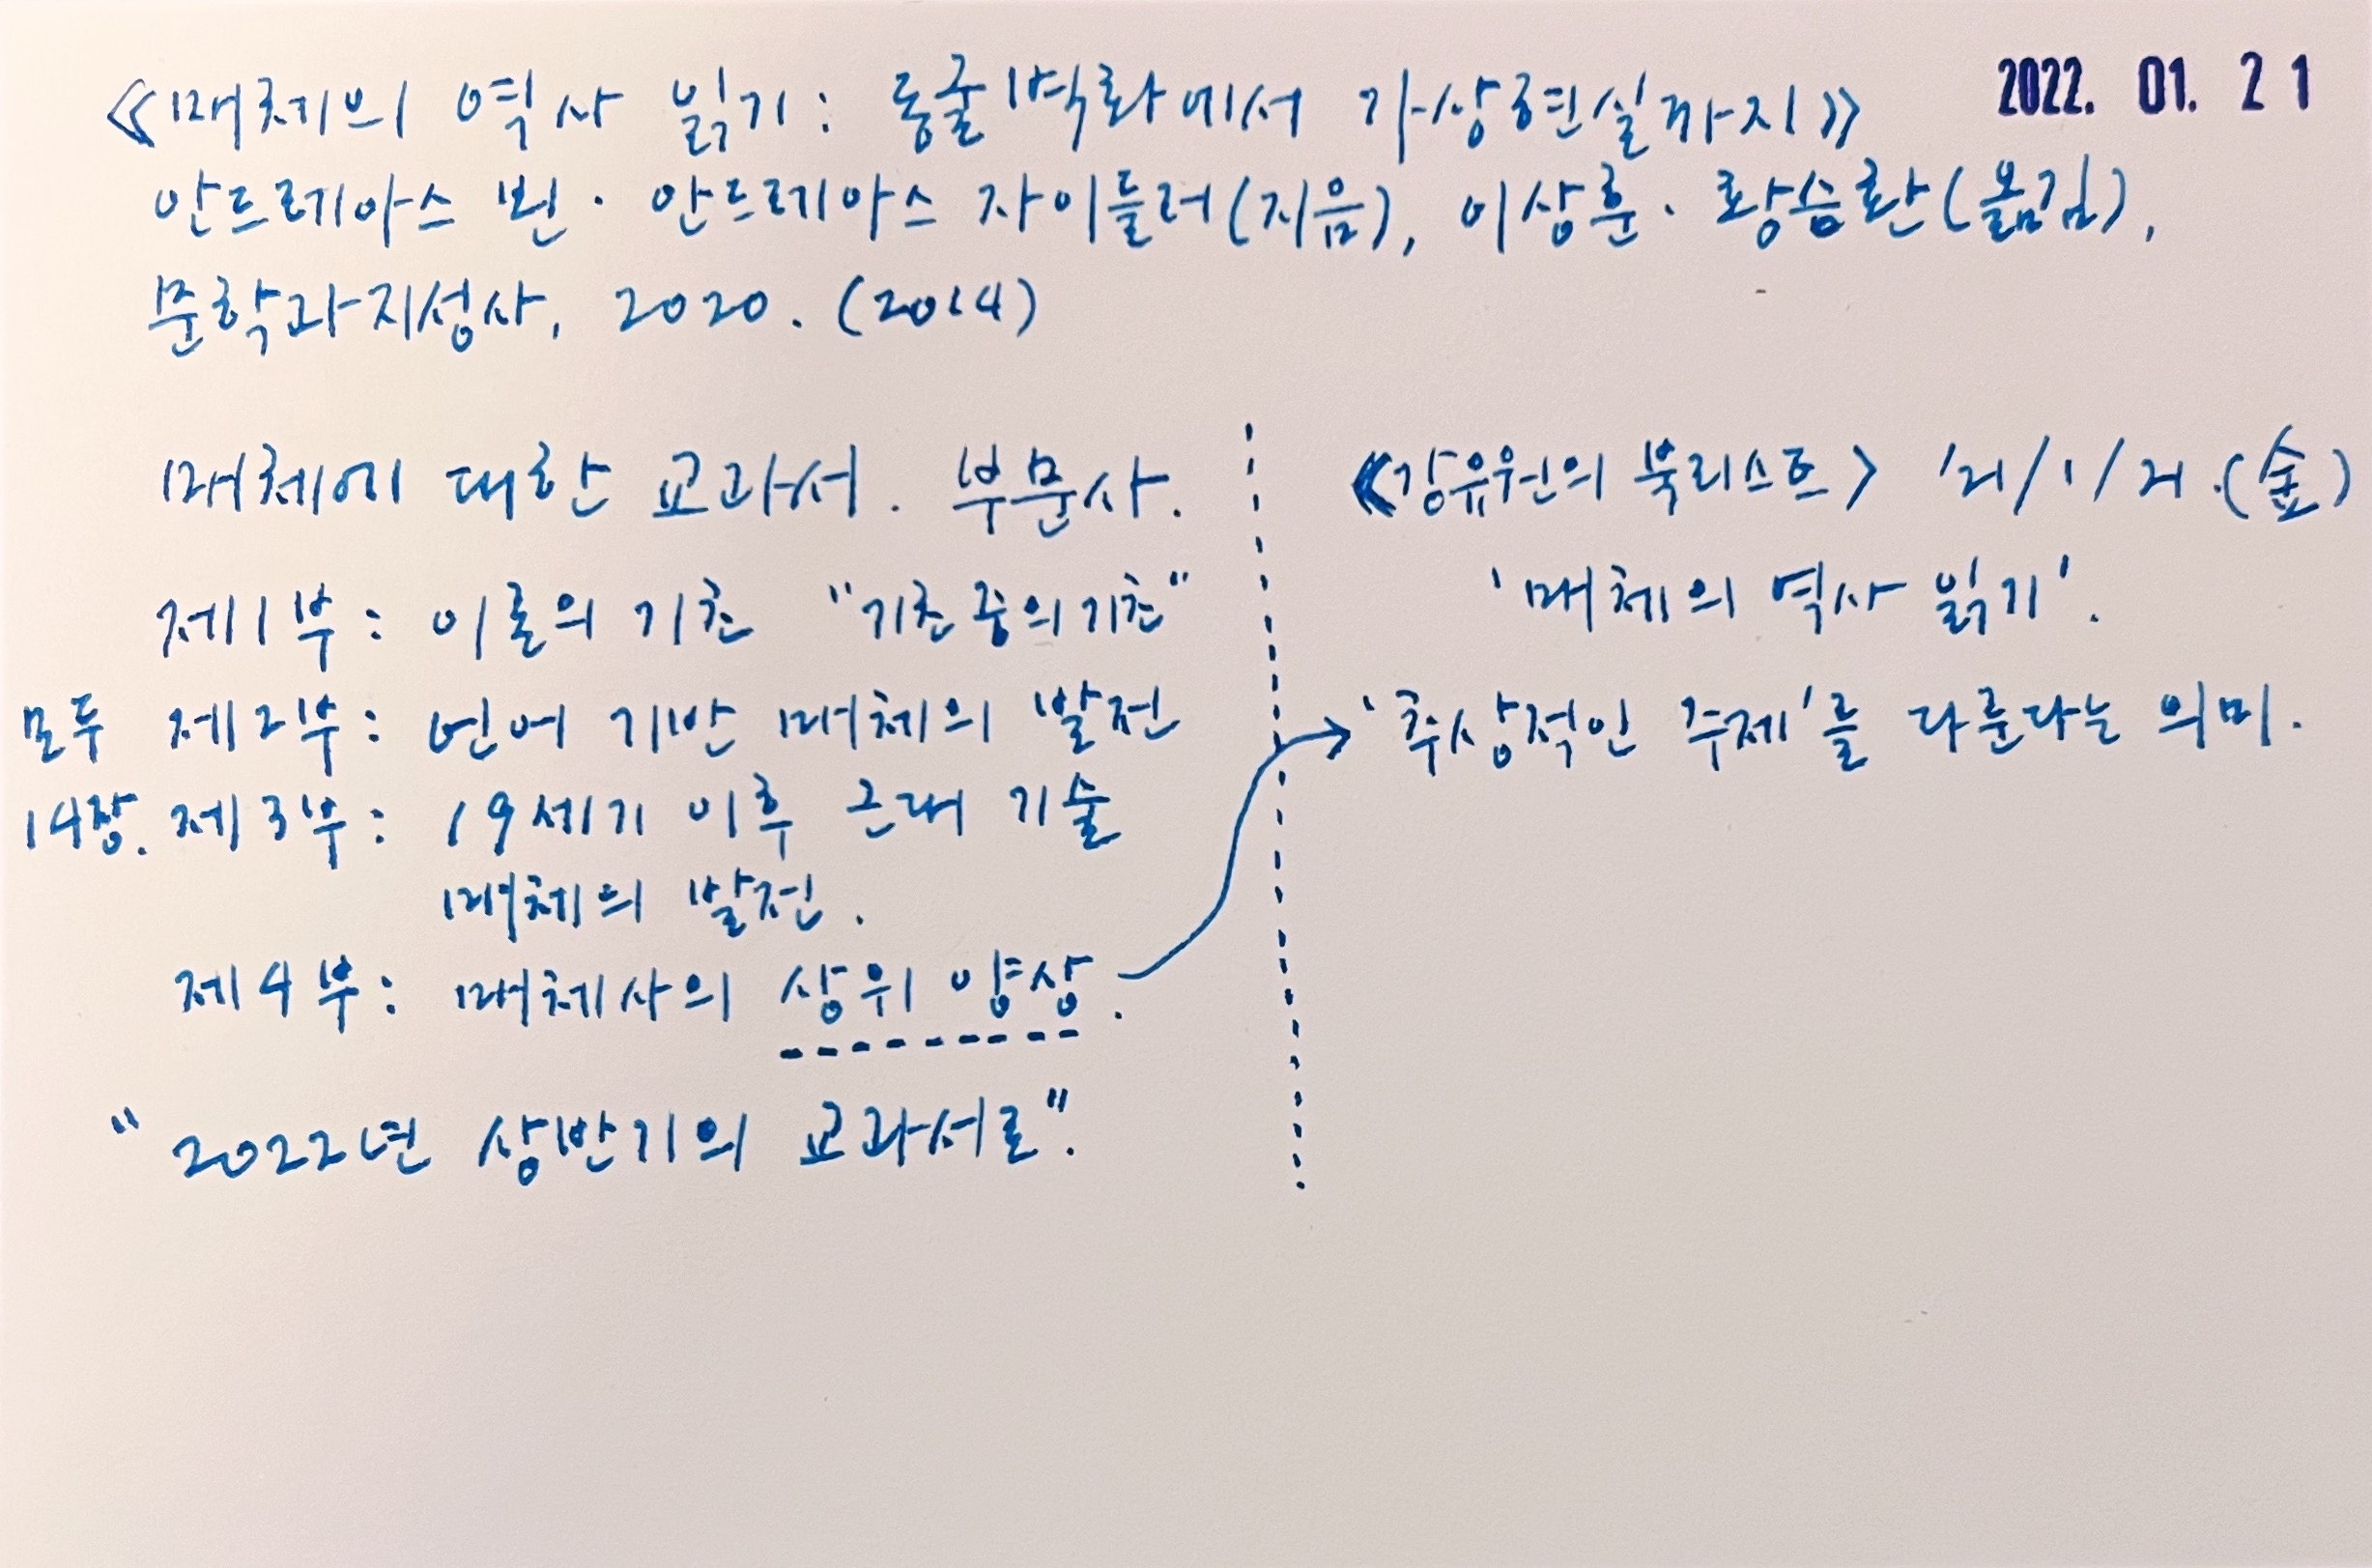 《매체의 역사 읽기: 동굴벽화에서 가상현실까지》
2022. 01. 21
안드레아스 뵌·안드레아스 자이들러(지음), 이상훈·황승환(옮김),
문학과지성사, 2020. (2014)
매체에 대한 교과서. 부문사.
제1부: 이론의 기초 "기초 중의 기초"
모두 제2부: 언어 기반 매체의 발전
14장. 제3부: 19세기 이후 근대 기술
매체의 발전.
제4부: 매체사의 상위 양상.
"2022년 상반기의 교과서로".
《강유원의 북리스트> '21/1/21.(金)
'매체의 역사 읽기'.
→ '추상적인 주제'를 다룬다는 의미.